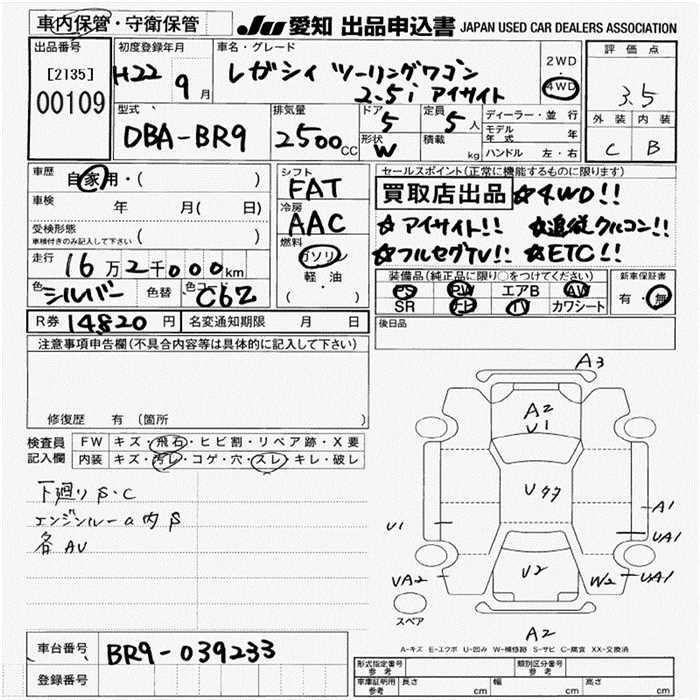 車内保管・守衛保管
JU 愛知 出品申込書 JAPAN USED CAR DEALERS ASSOCIATION
出品番号
[2135]
00109
初度登録年月
H22 9月
車名・グレード
レガシィ ツーリングワゴン
2.5i アイサイト
2WD
・
4WD
評価点
3.5
外装 内装
C B
型式
DBA-BR9
排気量
2500CC
ドア
5
定員
5人
形状
W
積載
kg
ディーラー・並行
モデル年式 年
ハンドル 左・右
車歴
自家用・( )
車検 年 月( 日)
受検形態
車検付きのみ記入して下さい ( )
走行
16万2千000km
色
シルバー
色替
色コード
C6Z
シフト
FAT
冷房
AAC
燃料
ガソリン
軽油
( ・ )
セールスポイント(正常に機能するものに限ります)
買取店出品 ☆4WD!!
☆アイサイト!! ☆追従クルコン!!
☆フルセグTV!! ☆ETC!!
装備品(純正品に限り○をつけてください)
PS PW エアB AW
SR ナビ TV カワシート
新車保証書
有・無
R券 14,820円
名変通知期限 月 日
後日品
注意事項申告欄(不具合内容等は具体的に記入して下さい)
修復歴 有(箇所 )
検査員記入欄
FW キズ・飛石・ヒビ割・リペア跡・X要
内装 キズ・汚レ・コゲ・穴・スレ・キレ・破レ
下廻りS・C
エンジンルーム内S
各AU
A3
A2
U1
Uササ
U1
A1
UA1
UA2
U2
W2
UA1
スペア
A2
A-キズ E-エクボ U-凹み W-補修跡 S-サビ C-腐食 XX-交換済
車台番号
BR9-039233
登録番号
形式指定番号
参考
類別区分番号
参考
車庫証明用
参考
長さ cm 幅 cm 高さ cm